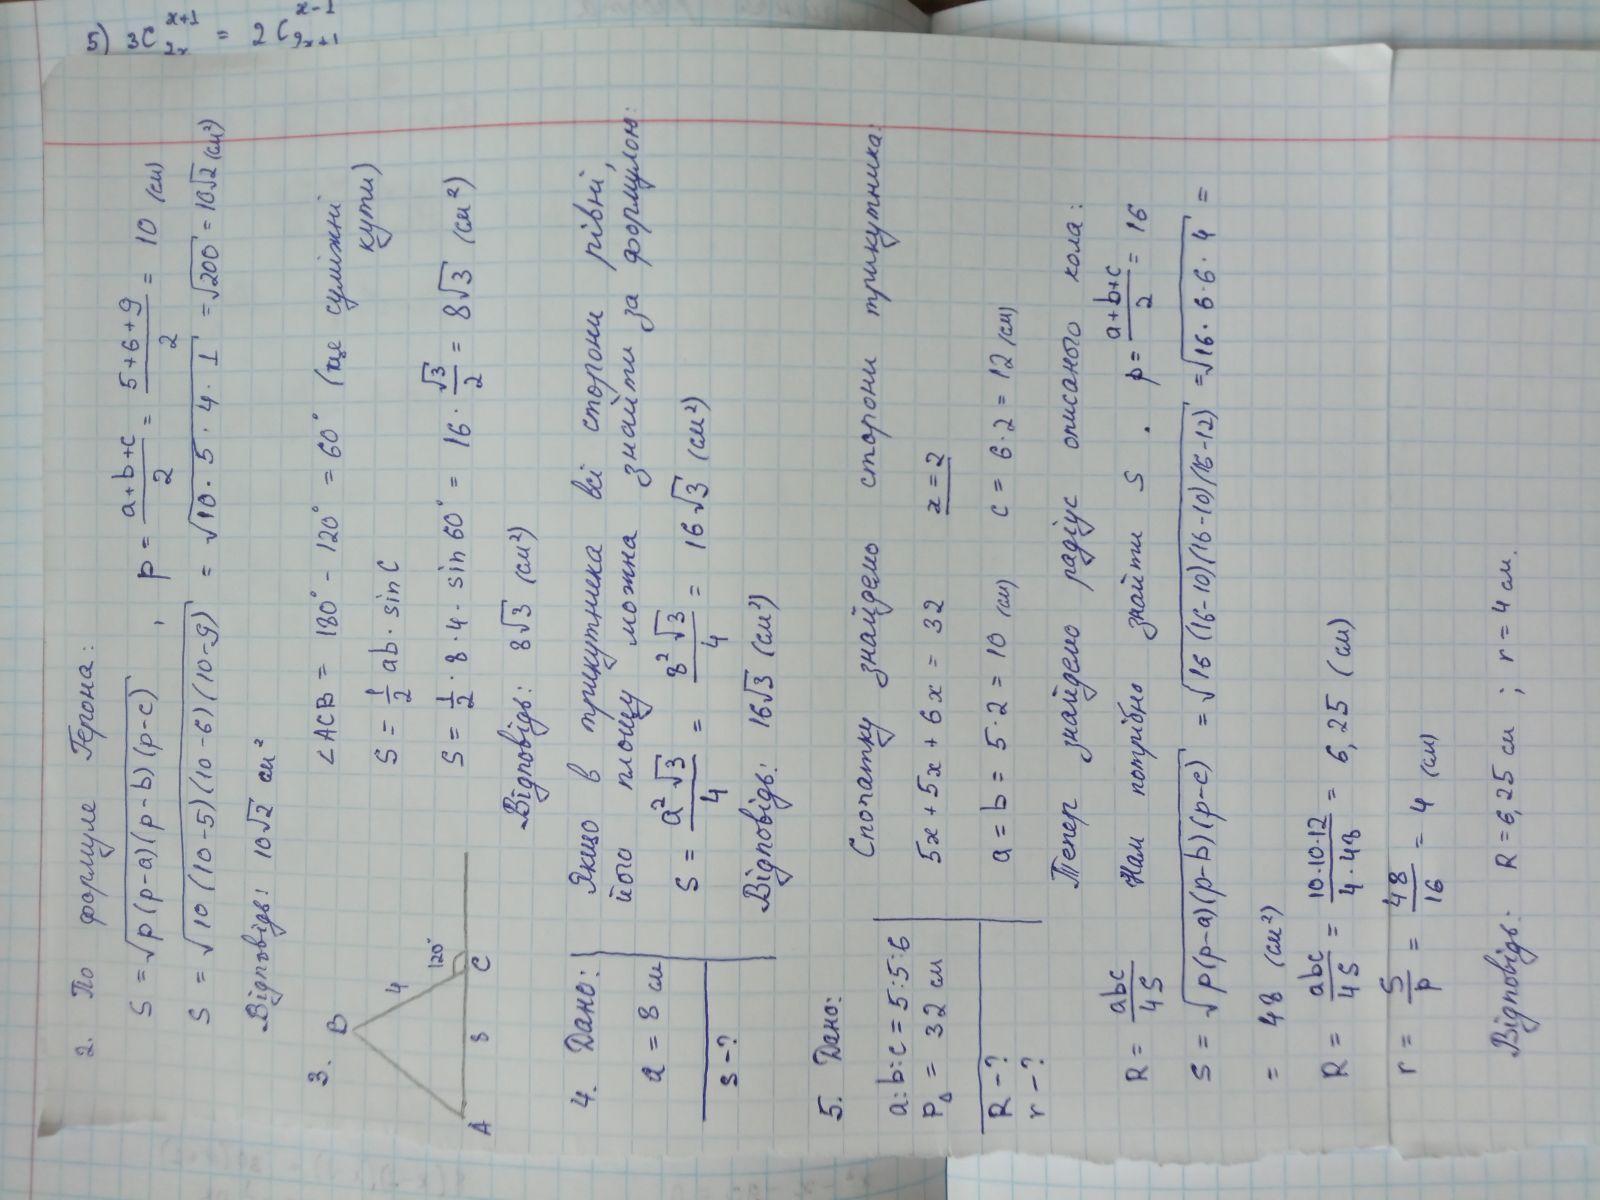 5) 3C_{2x}^{x+1} = 2C_{2x+1}^{x-1}
2. По формуле Герона:
S = √(p(p-a)(p-b)(p-c)) , p = (a+b+c)/2 = (5+6+9)/2 = 10 (см)
S = √(10(10-5)(10-6)(10-9)) = √(10·5·4·1) = √200 = 10√2 (см²)
Відповідь: 10√2 см²
3.
B
4
120°
A
8
C
∠ACB = 180° - 120° = 60° (це суміжні
кути)
S = 1/2 ab · sin C
S = 1/2 · 8 · 4 · sin 60° = 16 · √3/2 = 8√3 (см²)
Відповідь: 8√3 (см²)
4. Дано:
a = 8 см
S - ?
Якщо в трикутника всі сторони рівні,
його площу можна знайти за формулою:
S = a²√3/4 = 8²√3/4 = 16√3 (см²)
Відповідь: 16√3 (см²)
5. Дано:
a:b:c = 5:5:6
P_Δ = 32 см
R - ?
r - ?
Спочатку знайдемо сторони трикутника:
5x + 5x + 6x = 32 x = 2
a = b = 5 · 2 = 10 (см) c = 6 · 2 = 12 (см)
Тепер знайдемо радіус описаного кола:
R = abc/4S Нам потрібно знайти S . p = (a+b+c)/2 = 16
S = √(p(p-a)(p-b)(p-c)) = √(16(16-10)(16-10)(16-12)) = √(16·6·6·4) =
= 48 (см²)
R = abc/4S = 10·10·12/4·48 = 6,25 (см)
r = S/p = 48/16 = 4 (см)
Відповідь: R = 6,25 см ; r = 4 см.